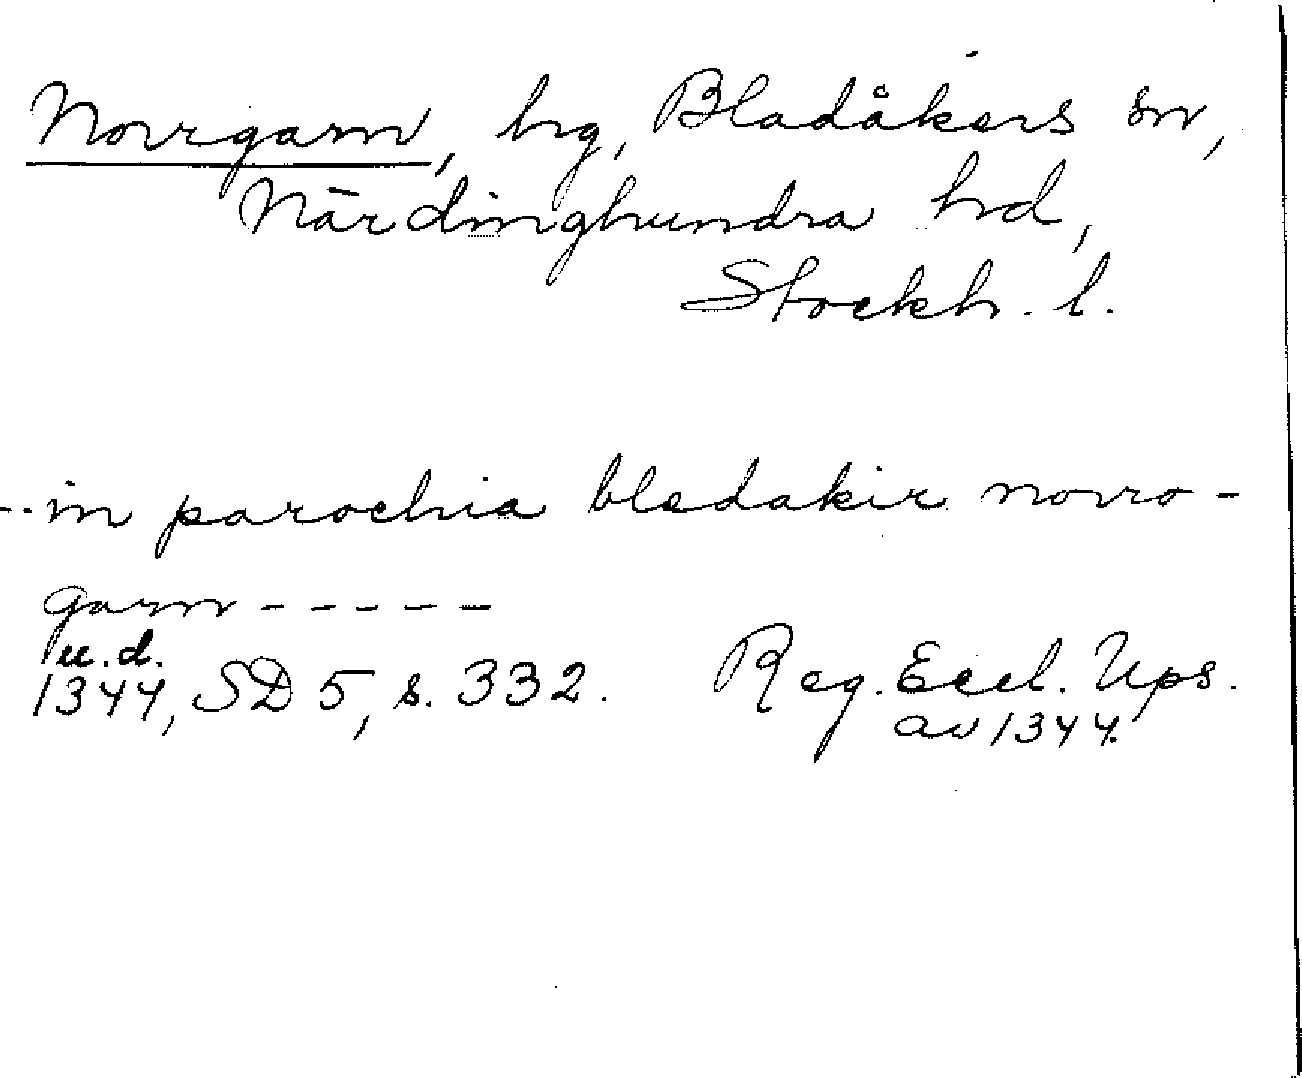 Norrgarn, hg, Bladåkers sn,
Närdinghundra hd,
Stockh. l.
--in parochia bledakir norro-
garn-----
u.d.
1344, SD 5, s. 332. Reg. Eccl. Ups.
av 1344.